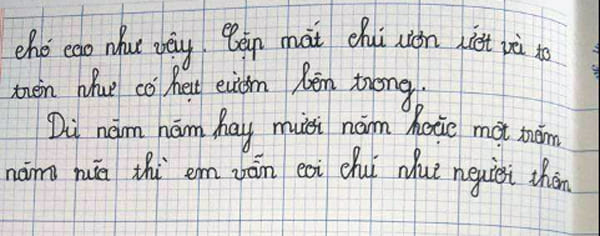 chó cao như vậy. Cặp mắt chú ươn ướt và to
tròn như có hạt cườm bên trong.
Dù năm năm hay mười năm hoặc một trăm
năm nữa thì em vẫn coi chú như người thân